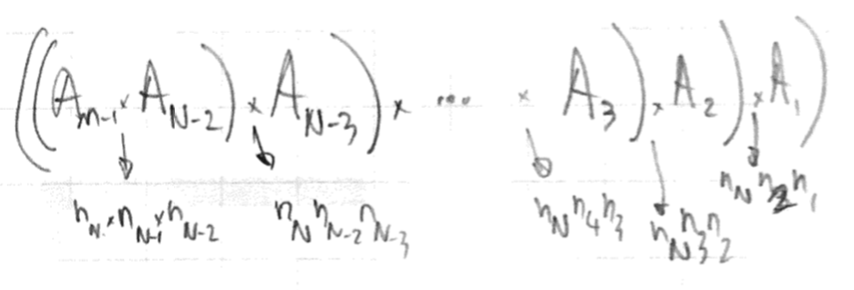 ((A_{m-1} × A_{N-2}) × A_{N-3}) × ... × A_3) × A_2) × A_1)
n_N × n_{N-1} × n_{N-2} n_N n_{N-2} n_{N-3} n_N n_4 n_3 n_N n_3 n_2 n_N n_2 n_1